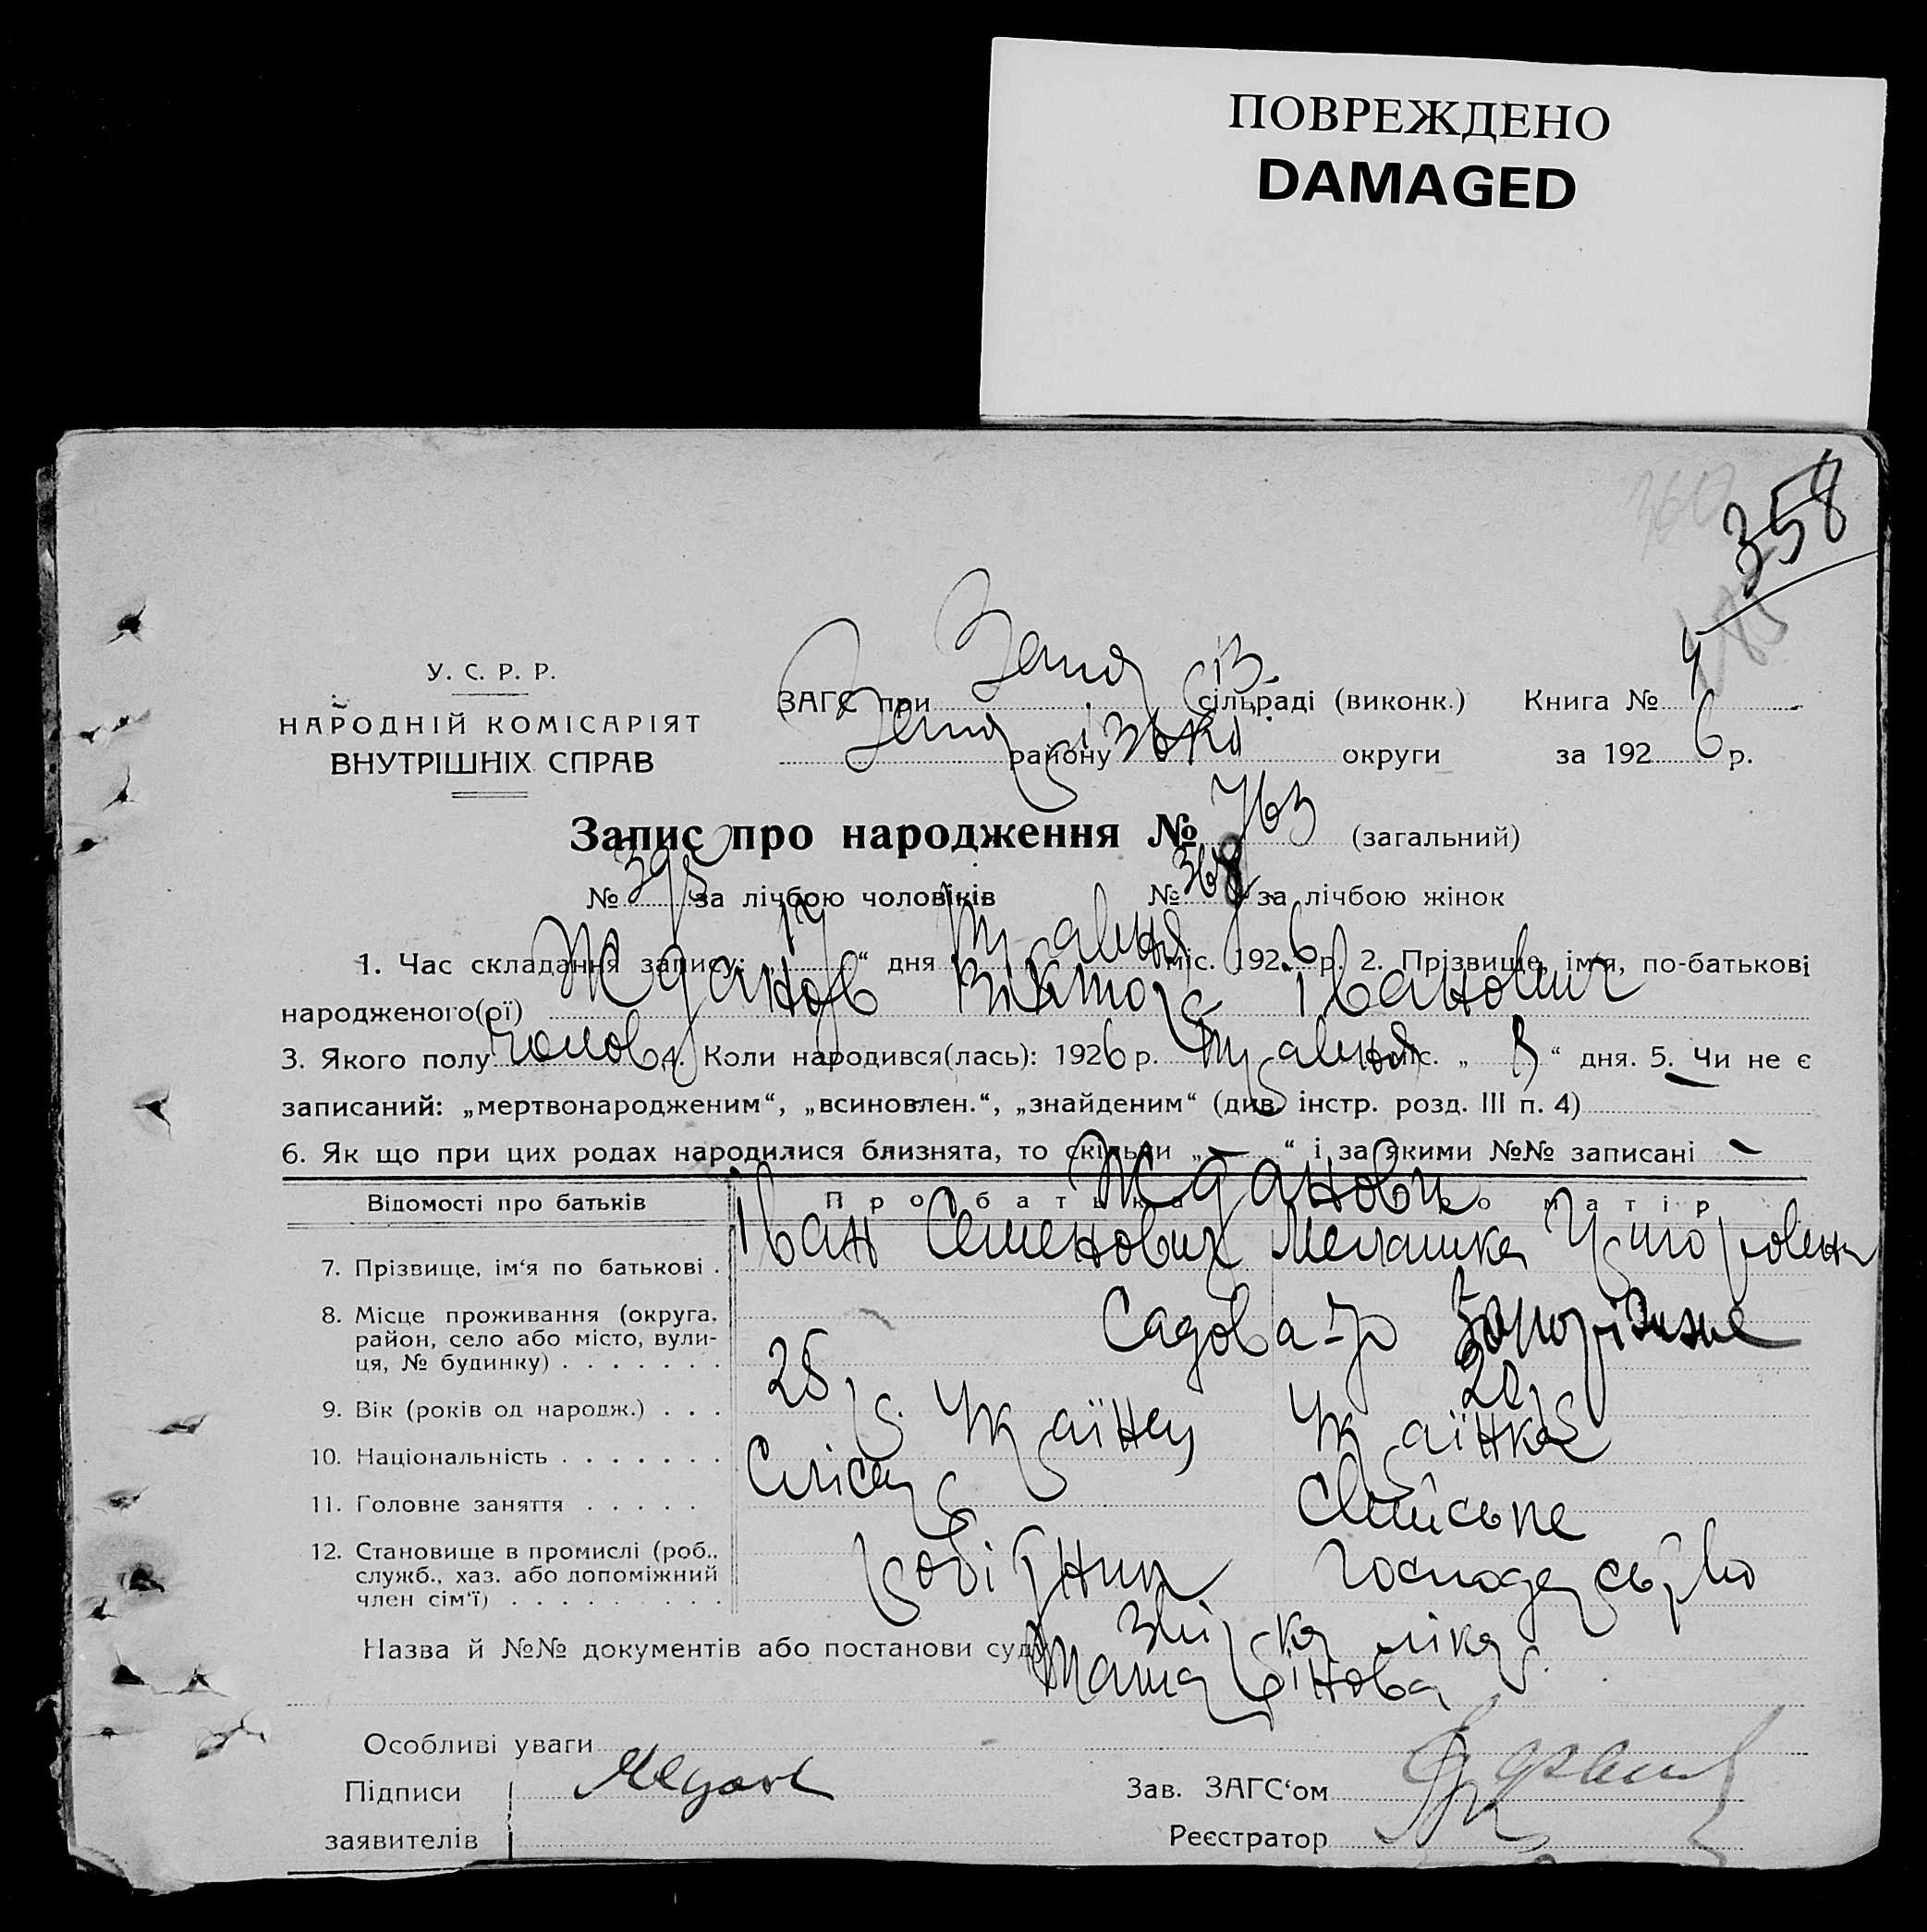 ПОВРЕЖДЕНО
DAMAGED
358
У. С. Р. Р.
НАРОДНІЙ КОМІСАРІЯТ
ВНУТРІШНІХ СПРАВ
ЗАГС при сільраді (виконк.) Книга № 4
району округи за 1926 р.
Запис про народження № 763 (загальний)
№ 395 за лічбою чоловіків № 368 за лічбою жінок
1. Час складання запису: „ 17 “ дня травня міс. 1926 р. 2. Прізвище, ім‘я, по-батькові
народженого(ої) Жданов Віктор Іванович
3. Якого полу чолов 4. Коли народився(лась): 1926 р. травня міс. „ “ дня. 5. Чи не є
записаний: „мертвонародженим“, „всиновлен.“, „знайденим“ (див. інстр. розд. III п. 4)
6. Як що при цих родах народилися близнята, то скільки „ — “ і за якими №№ записані —
Відомості про батьків Про батька Про матір
Жданови
7. Прізвище, ім‘я по батькові . Іван Семенович Мелашка Григоровена
8. Місце проживання (округа, район, село або місто, вули-ця, № будинку) . . . . . . . Садова Запоріжже
9. Вік (років од народж.) . . . 25 р. 20 р.
10. Національність . . . . . . . Українец Українка
11. Головне заняття . . . . . Слісар
12. Становище в промислі (роб., служб., хаз. або допоміжний член сім‘ї) . . . . . . . . . робітник господарство
Назва й №№ документів або постанови суду
Особливі уваги
Підписи Зав. ЗАГС‘ом
заявителів Реєстратор